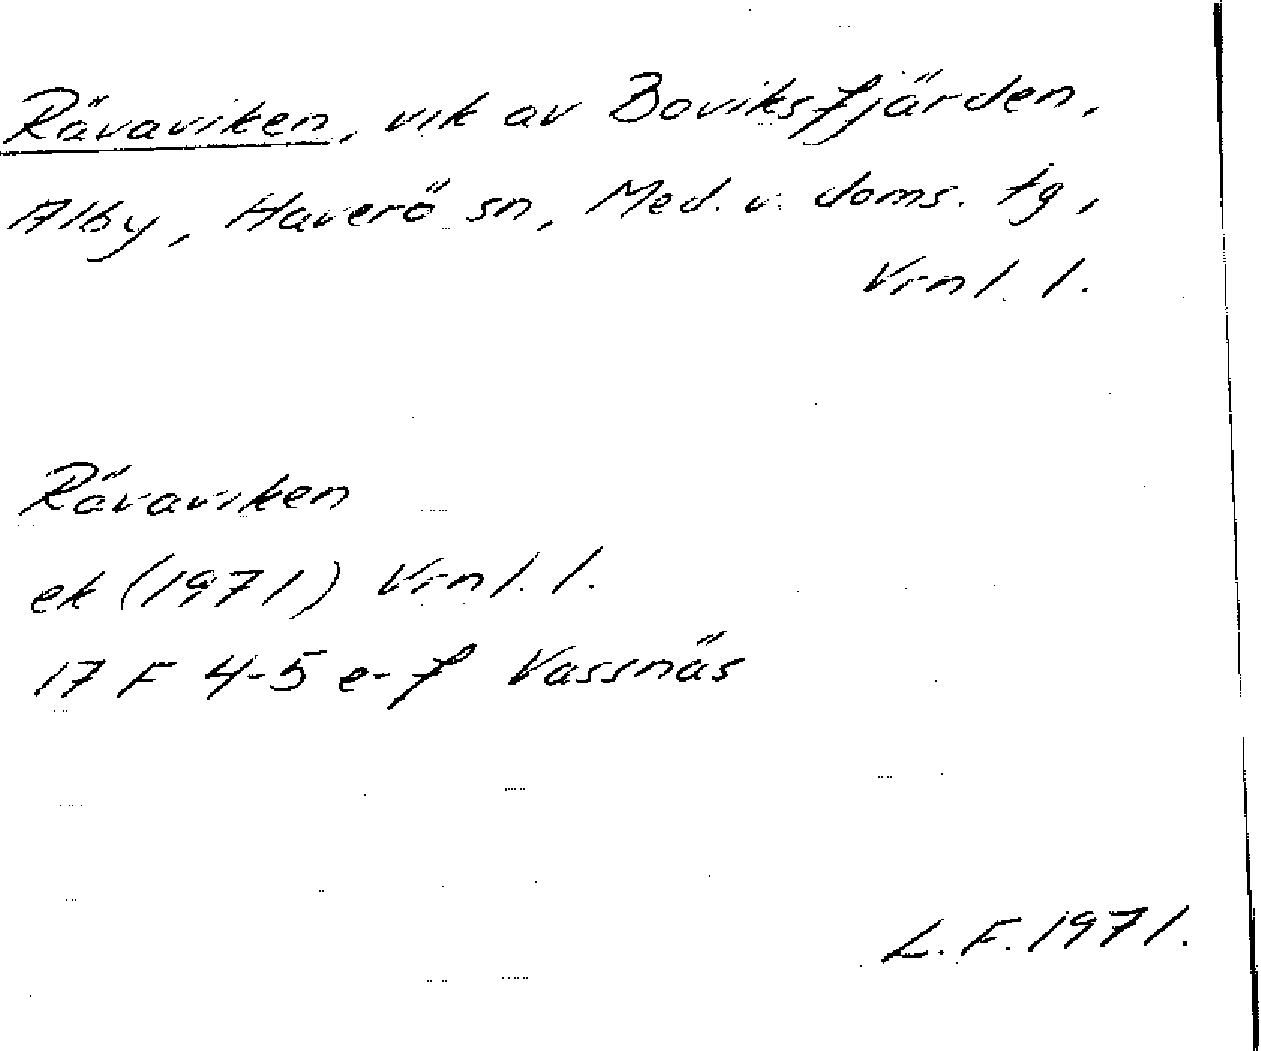 Rävaviken, vik av Boviksfjärden,
Alby, Haverö sn, Med. v. doms. tg,
Vrnl. l.
Rävaviken
ek (1971) Vrnl. l.
17 F 4-5 e-f Vassnäs
L. F. 1971.